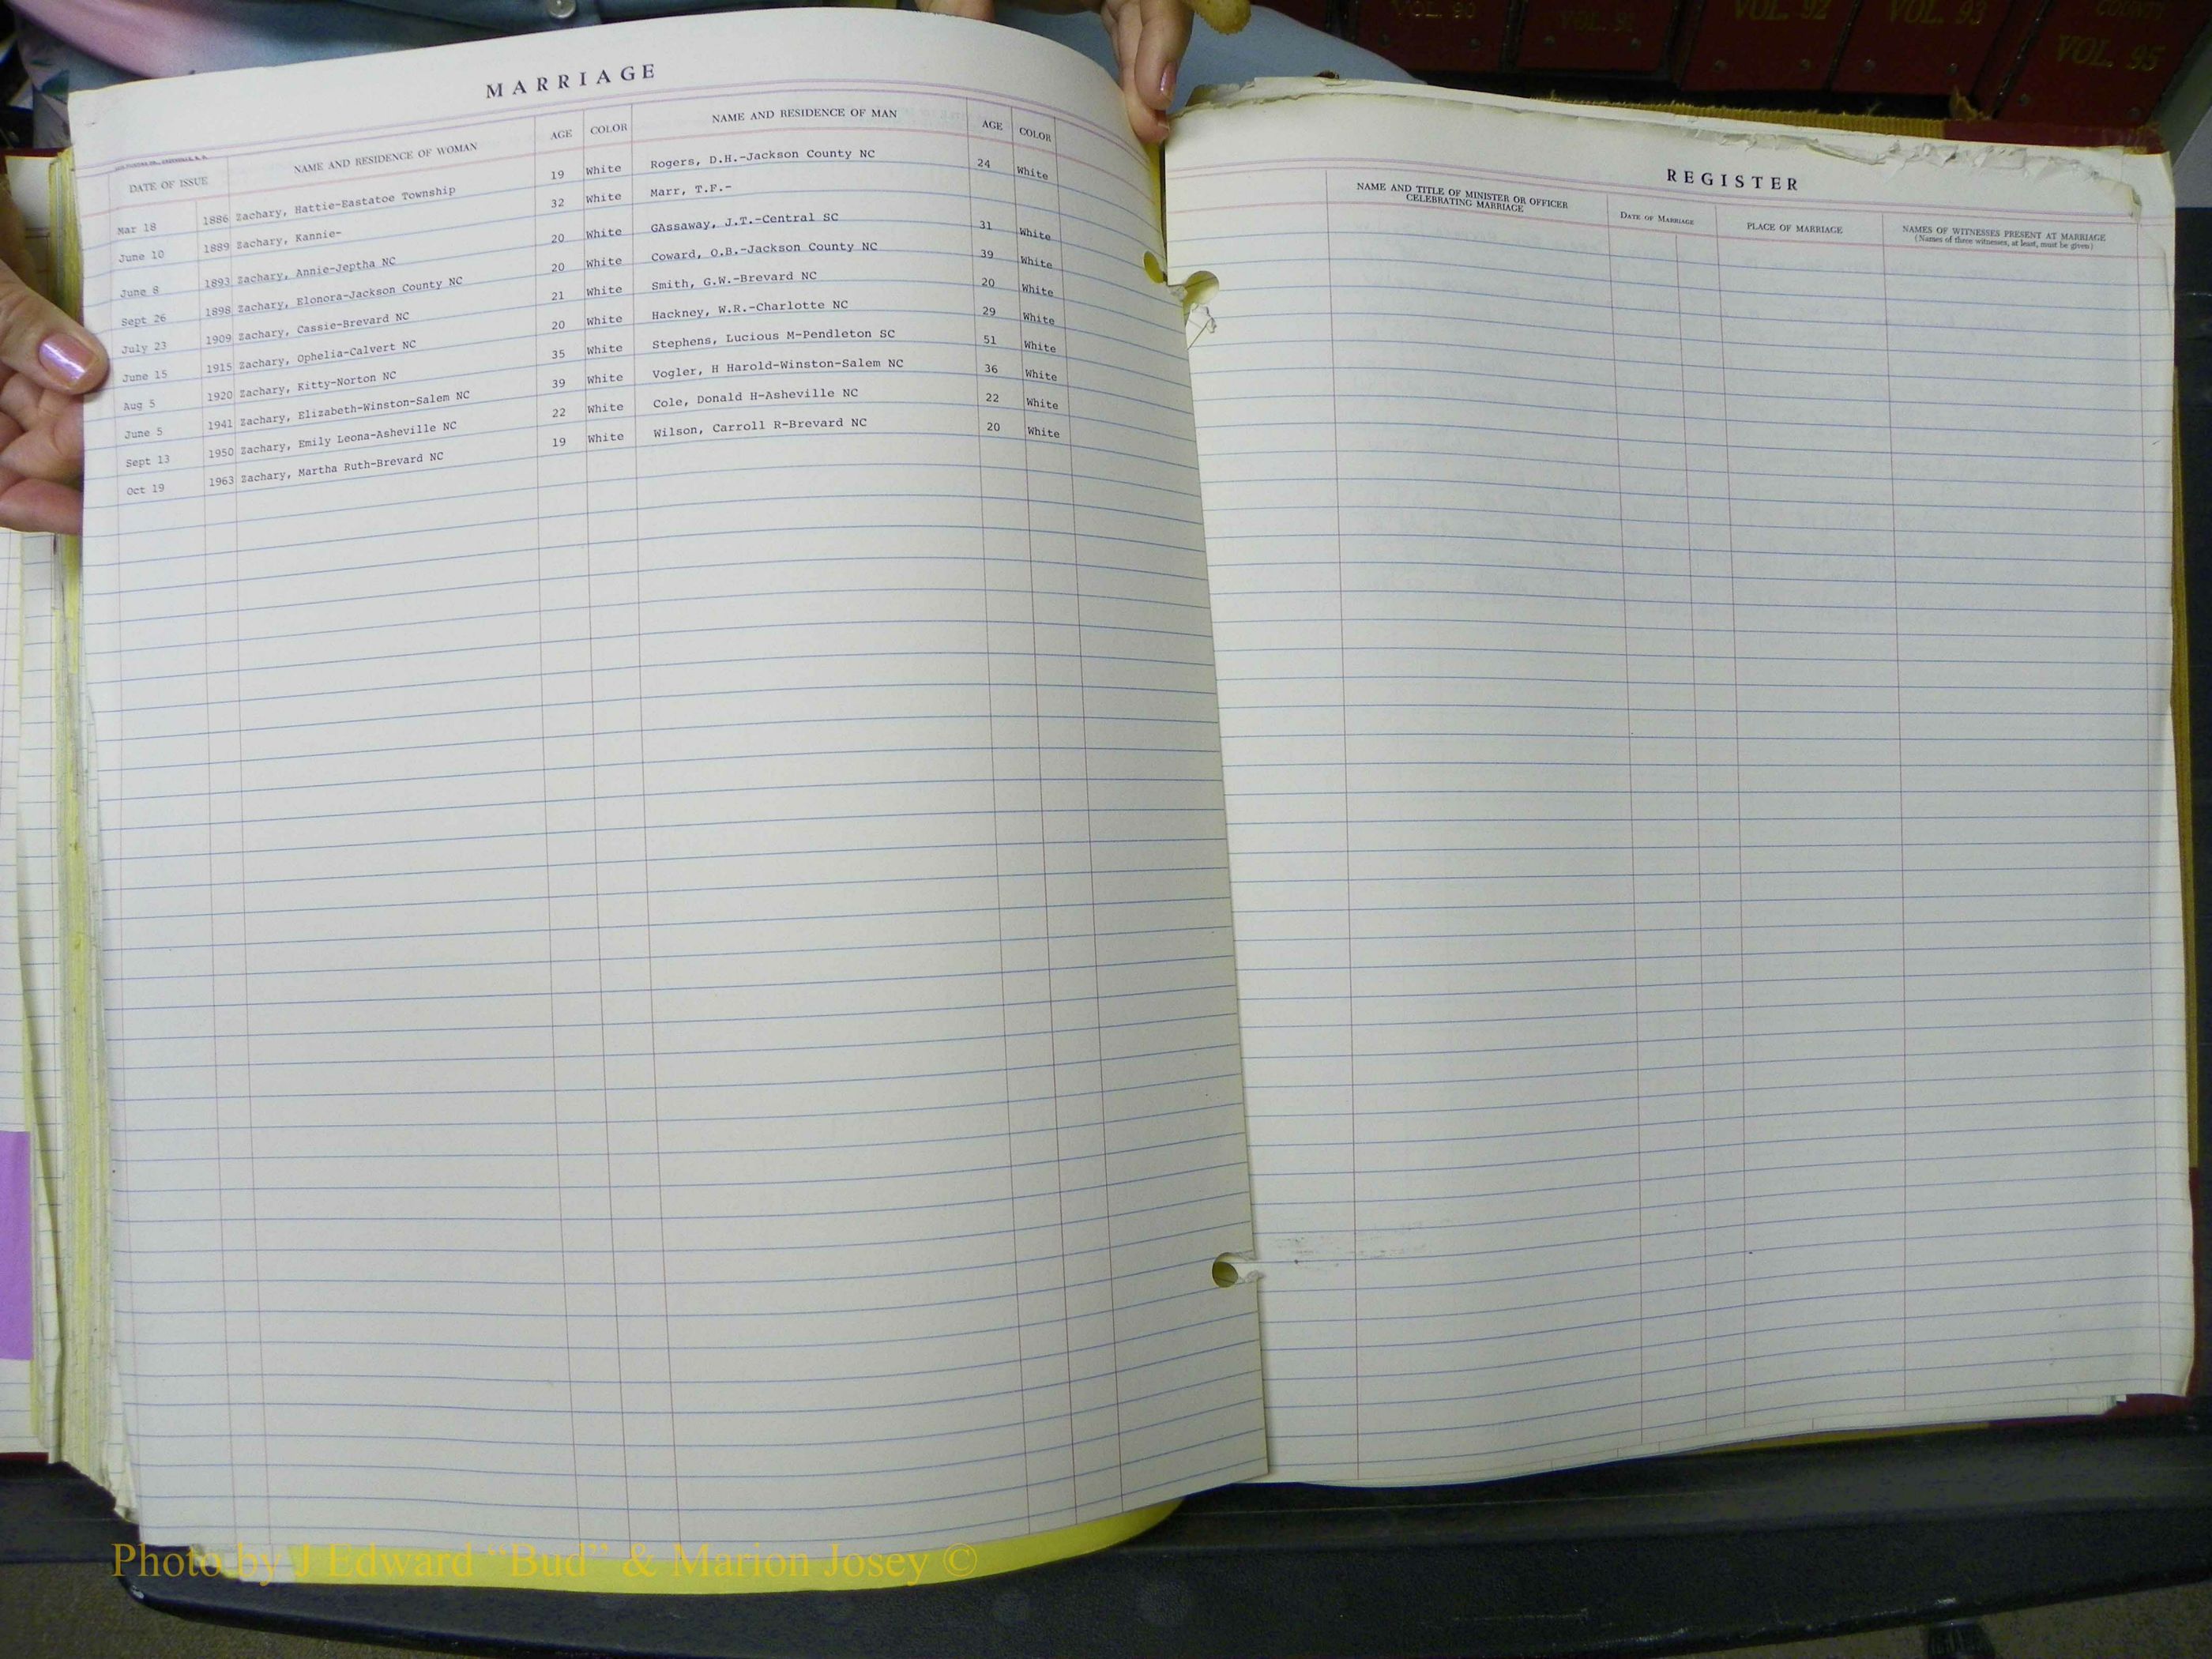 VOL. 90
VOL. 92
VOL. 93
COUNTY
VOL. 95
MARRIAGE
DATE OF ISSUE NAME AND RESIDENCE OF WOMAN AGE COLOR NAME AND RESIDENCE OF MAN AGE COLOR
Mar 18 1886 Zachary, Hattie-Eastatoe Township 19 White Rogers, D.H.-Jackson County NC 24 White
June 10 1889 Zachary, Kannie- 32 White Marr, T.F.-
June 8 1893 Zachary, Annie-Jeptha NC 20 White GAssaway, J.T.-Central SC 31 White
Sept 26 1898 Zachary, Elonora-Jackson County NC 20 White Coward, O.B.-Jackson County NC 39 White
July 23 1909 Zachary, Cassie-Brevard NC 21 White Smith, G.W.-Brevard NC 20 White
June 15 1915 Zachary, Ophelia-Calvert NC 20 White Hackney, W.R.-Charlotte NC 29 White
Aug 5 1920 Zachary, Kitty-Norton NC 35 White Stephens, Lucious M-Pendleton SC 51 White
June 5 1941 Zachary, Elizabeth-Winston-Salem NC 39 White Vogler, H Harold-Winston-Salem NC 36 White
Sept 13 1950 Zachary, Emily Leona-Asheville NC 22 White Cole, Donald H-Asheville NC 22 White
Oct 19 1963 Zachary, Martha Ruth-Brevard NC 19 White Wilson, Carroll R-Brevard NC 20 White
REGISTER
NAME AND TITLE OF MINISTER OR OFFICER
CELEBRATING MARRIAGE
DATE OF MARRIAGE
PLACE OF MARRIAGE
NAMES OF WITNESSES PRESENT AT MARRIAGE
(Names of three witnesses, at least, must be given)
Photo by J Edward “Bud” & Marion Josey ©